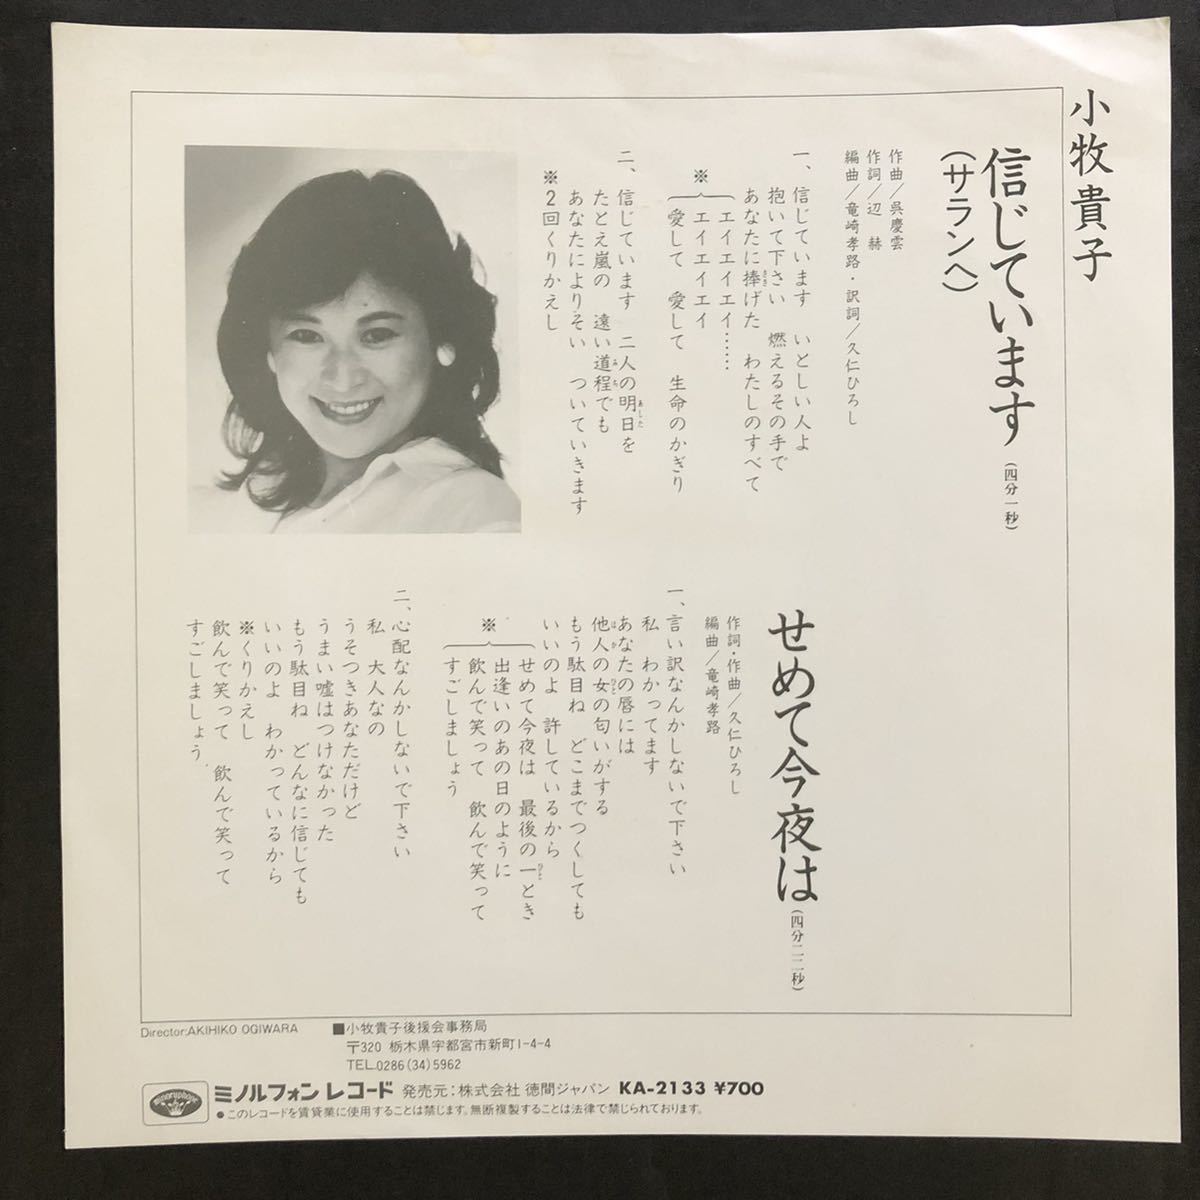 小牧貴子
信じています(四分一秒)
(サランヘ)
作曲/呉慶雲
作詞/辺 赫
編曲/竜崎孝路・訳詞/久仁ひろし
一、信じています いとしい人よ
抱いて下さい 燃えるその手で
あなたに捧げた わたしのすべて
※エイエイエイ……
エイエイエイ
愛して 愛して 生命のかぎり
二、信じています 二人の明日を
たとえ嵐の 遠い道程でも
あなたによりそい ついていきます
※2回くりかえし
せめて今夜は(四分二二秒)
作詞・作曲/久仁ひろし
編曲/竜崎孝路
一、言い訳なんかしないで下さい
私 わかってます
あなたの唇には
他人の女の匂いがする
もう駄目ね どこまでつくしても
いいのよ 許しているから
※せめて今夜は 最後の一とき
出逢いのあの日のように
飲んで笑って 飲んで笑って
すごしましょう
二、心配なんかしないで下さい
私 大人なの
うそつきあなただけど
うまい嘘はつけなかった
もう駄目ね どんなに信じても
いいのよ わかっているから
※くりかえし
飲んで笑って 飲んで笑って
すごしましょう
Director:AKIHIKO OGIWARA
■小牧貴子後援会事務局
〒320 栃木県宇都宮市新町1-4-4
TEL.0286(34)5962
minoruphone
ミノルフォンレコード 発売元:株式会社 徳間ジャパン KA-2133 ¥700
●このレコードを賃貸業に使用することは禁じます。無断複製することは法律で禁じられております。